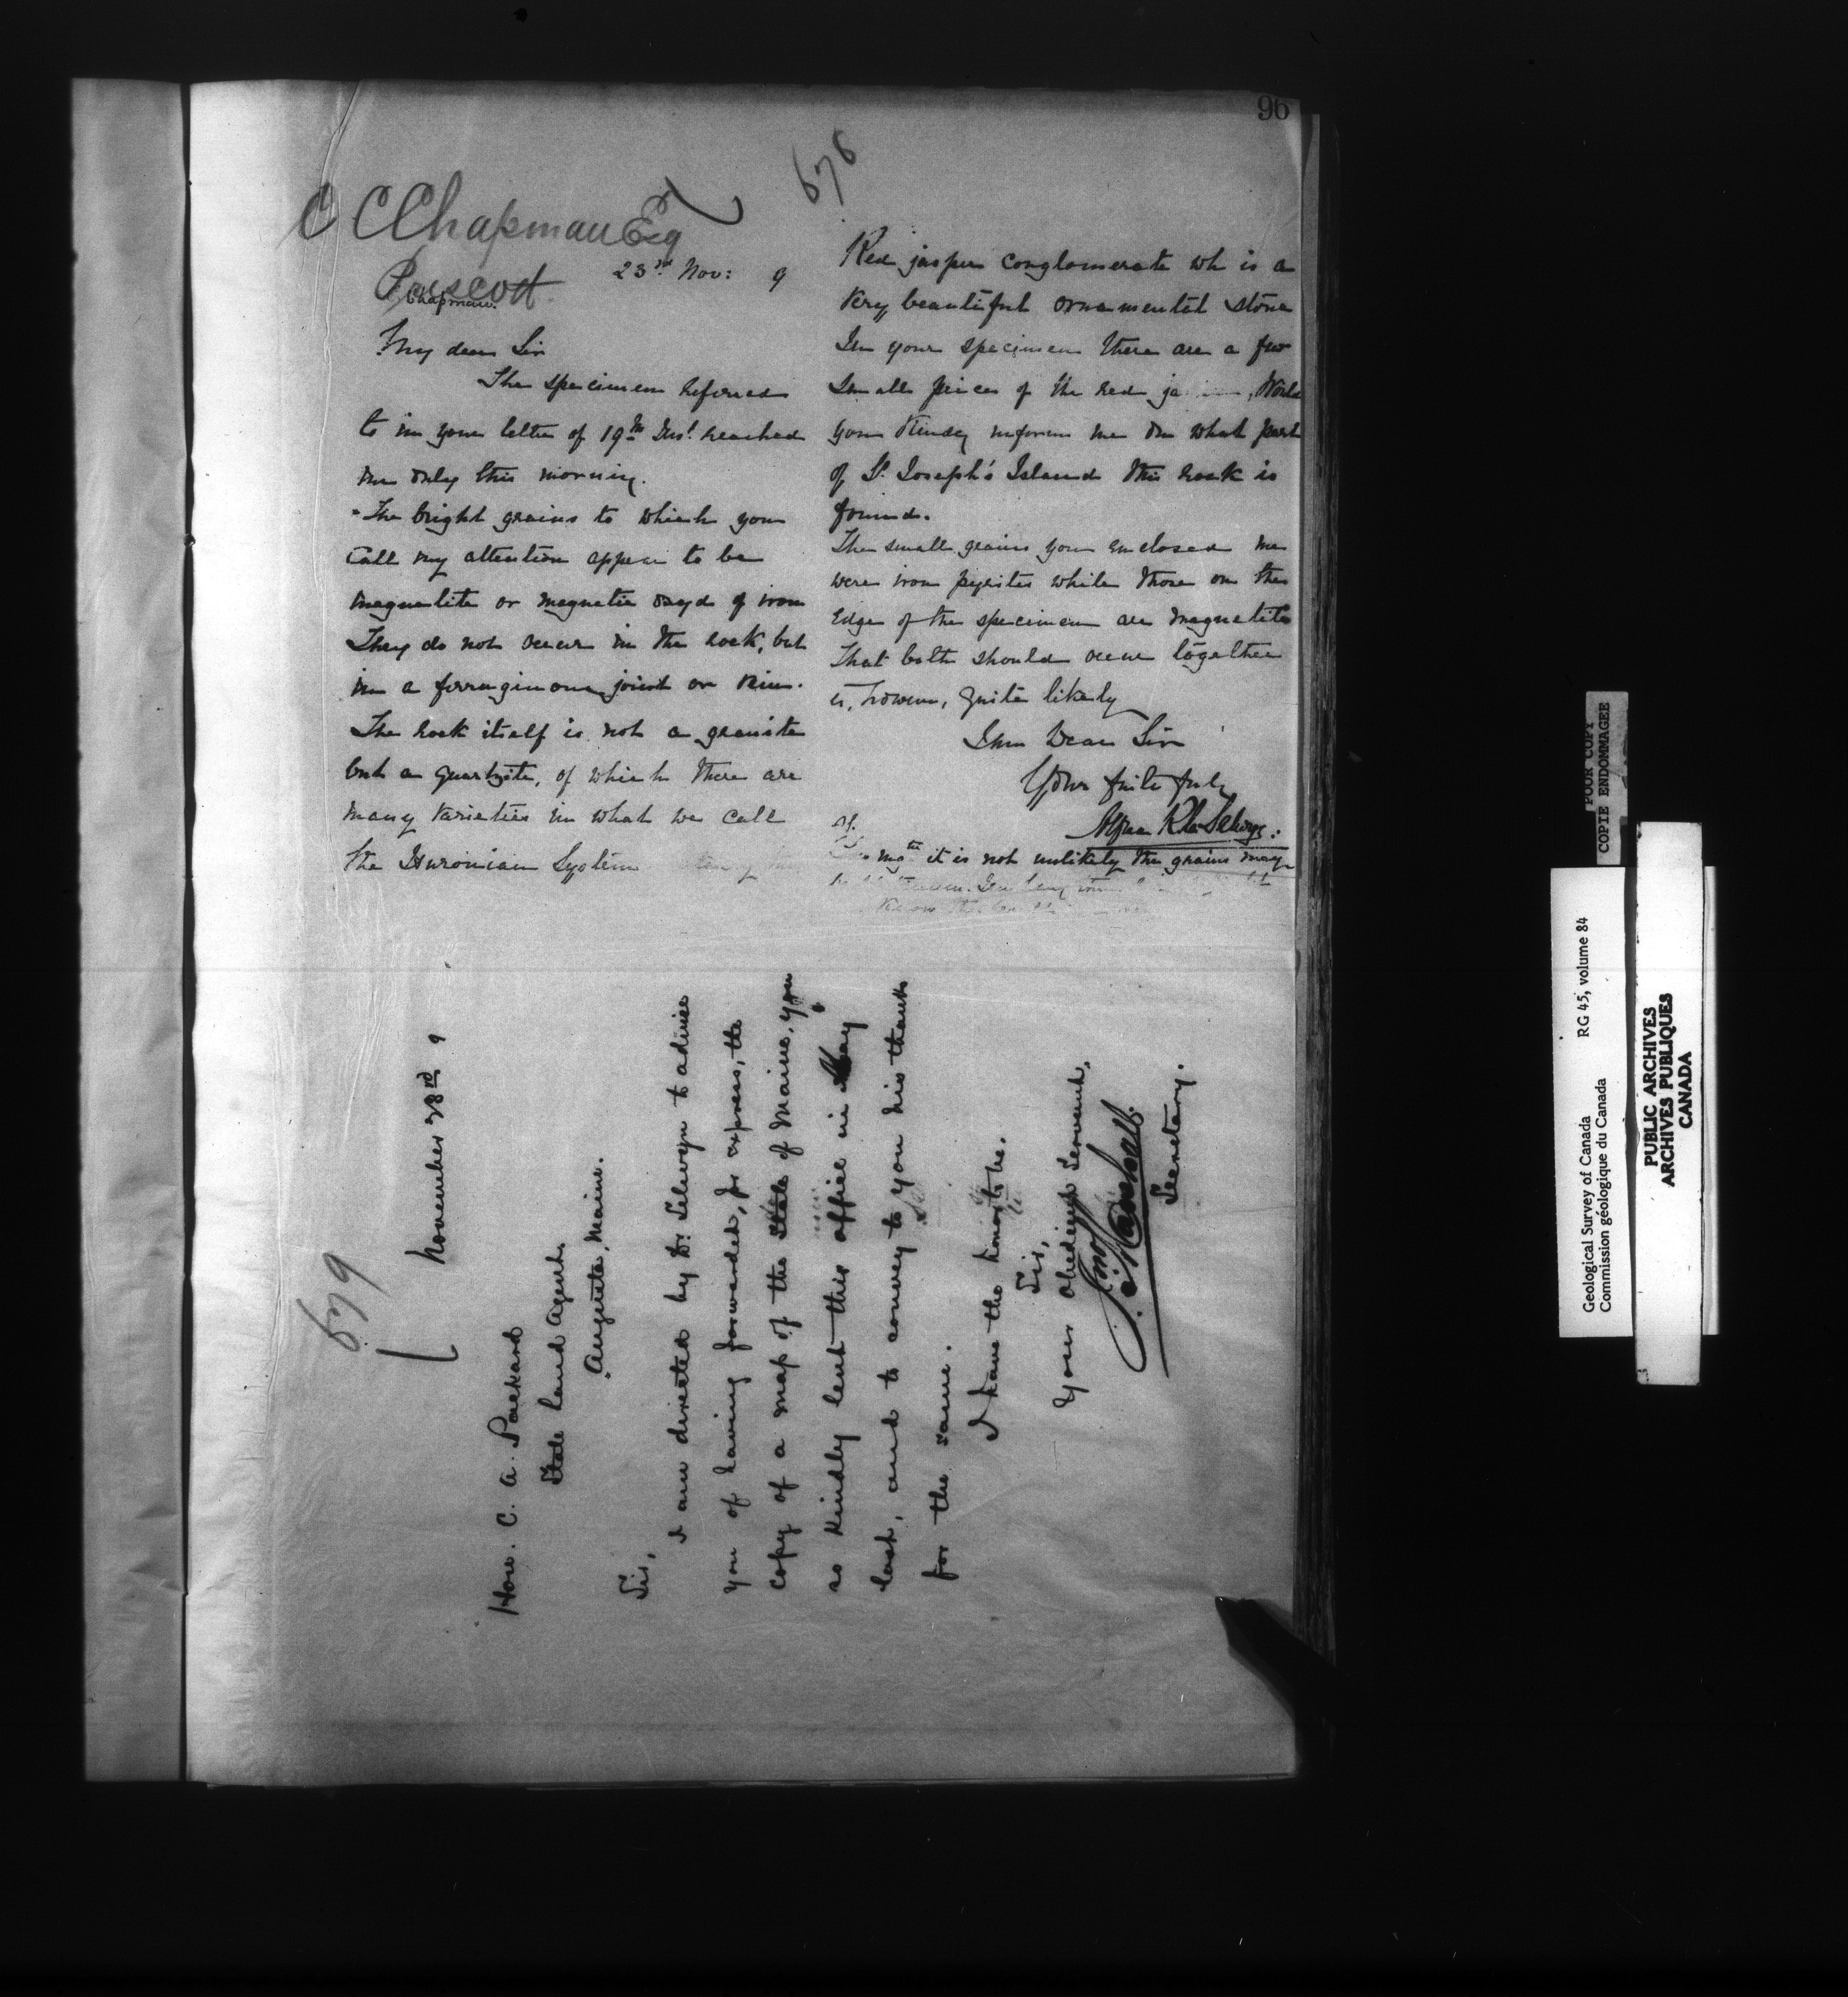 96
678
C C Chapman Esq
Prescott
Chapman.
23rd Nov: 9
My dear Sir
The specimen referred
to in your letter of 19th Inst. reached
me only this morning.
The bright grains to which you
call my attention appear to be
magnetite or magnetic oxyd of iron
They do not occur in the rock, but
in a ferruginous joint or vein.
The rock itself is not a granite
but a quartzite, of which there are
many varieties in what we call
the Huronian System
Red jasper conglomerate wh is a
very beautiful ornamental stone
In your specimen there are a few
small pieces of the red
you kindly inform me on what part
of St. Joseph's Island this rock is
found.
The small grains you enclosed me
were iron pyrites while those on the
edge of the specimen are magnetite
That both should occur together
is, however, quite likely
I am Dear Sir
Yours faithfully
Alfred R C Selwyn.
it is not unlikely the grains may
679
November 28rd 9
Hon. C. A. Packard
State Land Agent.
Augusta, Maine.
Sir,
I am directed by Dr. Selwyn to advise
you of having forwarded, for express, the
copy of a map of the State of Maine, you
so kindly lent this office in May
last, and to convey to you his thanks
for the same.
I have the honor to be.
Sir,
Your obedient Servant,
Jno Marshall.
Secretary.
POOR COPY
COPIE ENDOMMAGEE
Geological Survey of Canada RG 45, volume 84
Commission géologique du Canada
PUBLIC ARCHIVES
ARCHIVES PUBLIQUES
CANADA